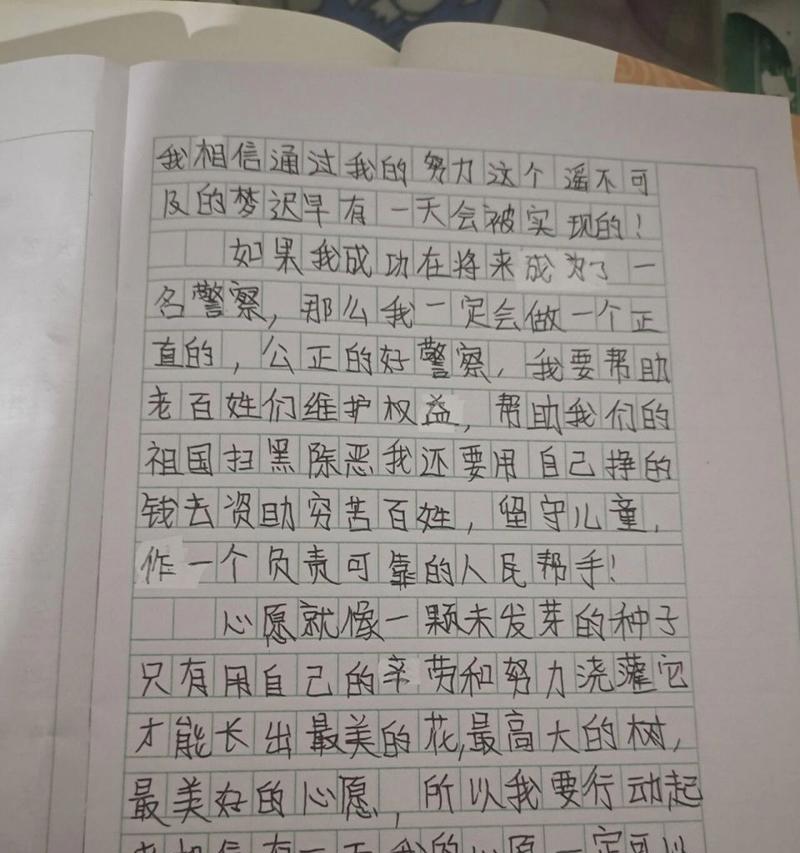 我相信通过我的努力这个遥不可
及的梦迟早有一天会被实现的！
如果我成功在将来成为了一
名警察，那么我一定会做一个正
直的，公正的好警察，我要帮助
老百姓们维护权益，帮助我们的
祖国扫黑除恶我还要用自己挣的
钱去资助穷苦百姓，留守儿童，
作一个负责可靠的人民帮手！
心愿就像一颗未发芽的种子
只有用自己的辛劳和努力浇灌它
才能长出最美的花,最高大的树，
最美好的心愿，所以我要行动起
来相信有一天我的心愿一定可以